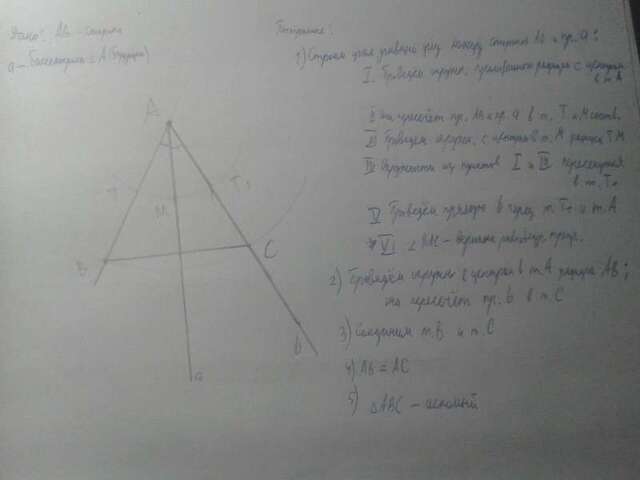 Дано: AB - сторона
a - биссектриса ∠A (будущая)
Построение:
1) Строим угол равный углу между стороной AB и пр. a:
I. Проведём окружн. произвольного радиуса с центром
в т. A
II она пересечёт пр. AB и пр. a в т. T и M соотв.
III Проведём окружн. с центром в т. M радиуса TM
IV Окружности из пунктов I и III пересекутся
в т. T₁
V Проведём прямую b через т. T₁ и т. A
VI ∠BAC - вершина равнобедр. треуг.
2) Проведём окружн. с центром в т. A радиуса AB;
она пересечёт пр. b в т. C
3) Соединим т. B и т. C
4) AB = AC
5) △ABC - искомый
A
T
T₁
M
B
C
b
a